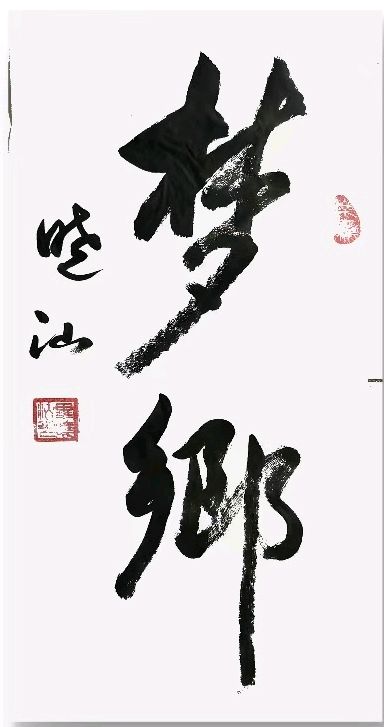 梦鄉
晓汕